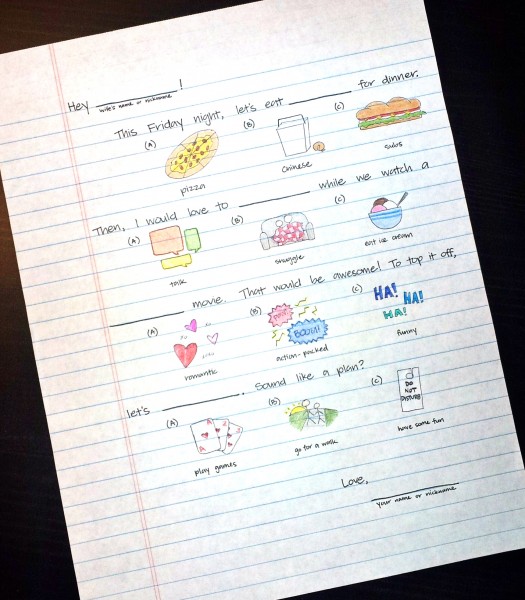 Hey ____________!
wife's name or nickname
This Friday night, let's eat ____________ for dinner.
(A) (B) (C)
pizza Chinese subs
Then, I would love to ____________ while we watch a
(A) (B) (C)
talk snuggle eat ice cream
____________ movie. That would be awesome! To top it off,
(A) (B) (C)
POW! BOOM! HA! HA! HA!
romantic action-packed funny
let's ____________. Sound like a plan?
(A) (B) (C)
A A
DO
NOT
DISTURB
play games go for a walk have some fun
Love,
____________
your name or nickname